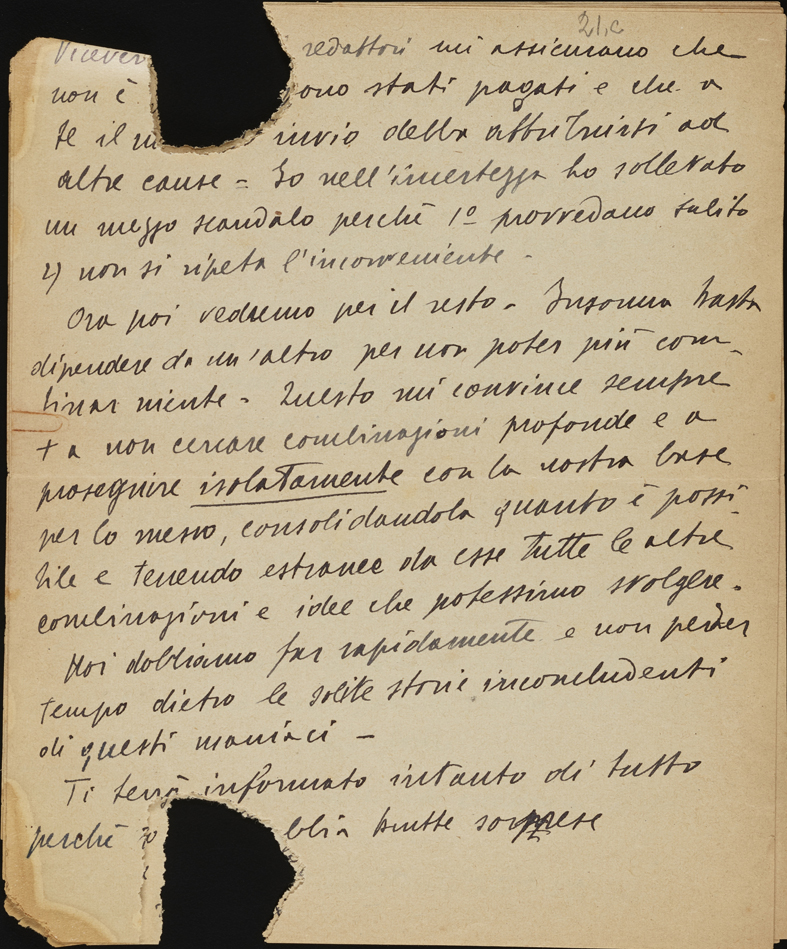 21,c
Vicever redattori mi assicurano che
non è ono stati pagati e che a
te il m invio debba attribuirsi ad
altre cause = Io nell'incertezza ho sollevato
un mezzo scandalo perchè 1º provvedano subito
2) non si ripeta l'inconveniente -
Ora poi vedremo per il resto - Insomma basta
dipendere da un'altro per non poter più com-
binar niente - Questo mi convince sempre
+ a non cercare combinazioni profonde e a
proseguire isolatamente con la nostra base
per lo meno, consolidandola quanto è possi-
bile e tenendo estranee da esse tutte le altre
combinazioni e idee che potessimo svolgere.
Noi dobbiamo far rapidamente e non perder
tempo dietro le solite storie inconcludenti
di questi maniaci -
Ti terrò informato intanto di tutto
perchè bbia brutte sorprese